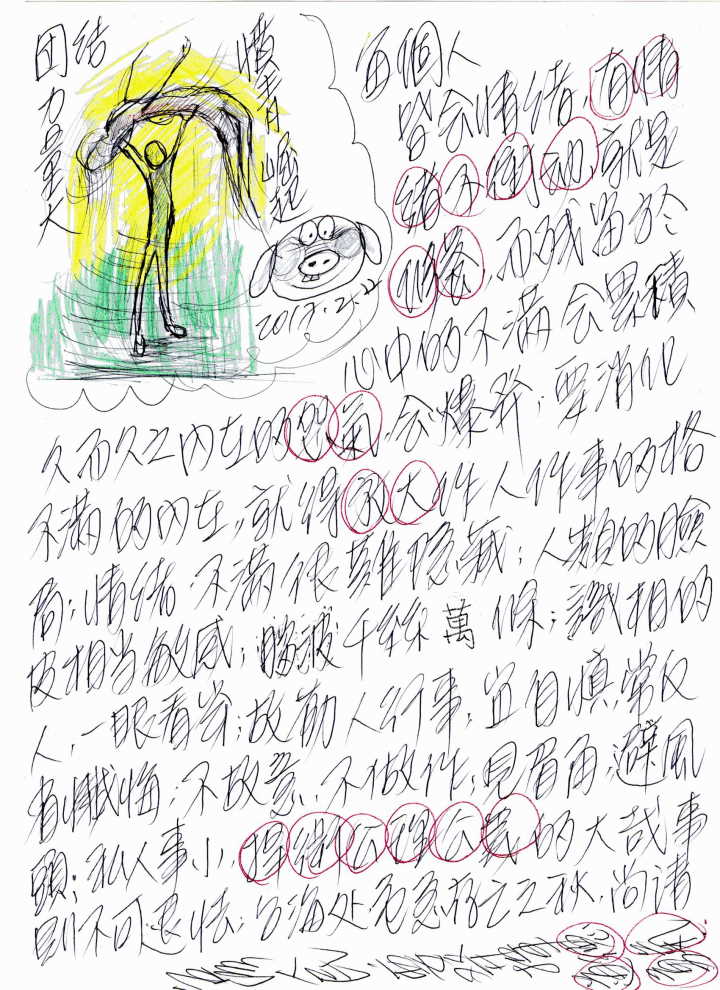 团结
力量大
愤青崛起
2017.2.2
每個人
皆会情绪,有情
绪不衝动,就是
修养,而残留於
心中的不满会累積
久而久之内在的怨氣,会爆發;要消化
不满的内在,就得放大作人作事的格
局;情绪不满很難隐藏;人類的臉
皮相当敏感;腦波千絲萬條;識相的
人,一眼看穿;故勸人行事,宜自慎,常反
省懺悔;不故意,不做作;見眉角;避風
頭;私人事小,捍衛公理公義的大哉事
則不可退怯;台海处危急存亡之秋,尚请